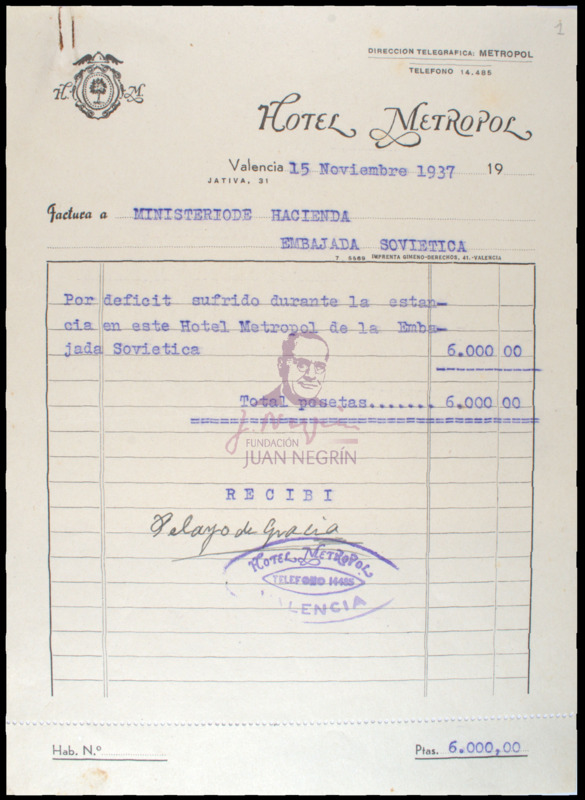 1
DIRECCION TELEGRAFICA: METROPOL
TELEFONO 14.485
H. M.
HOTEL METROPOL
Valencia 15 Noviembre 1937 19
JATIVA, 31
Factura a MINISTERIODE HACIENDA
EMBAJADA SOVIETICA
IMPRENTA GIMENO-DERECHOS, 41.-VALENCIA
Por deficit sufrido durante la estan-
cia en este Hotel Metropol de la Emba-
jada Sovietica 6.000 00
Total posetas....... 6.000 00
J. Negrín
FUNDACIÓN
JUAN NEGRÍN
RECIBI
Pelayo de Gracia
HOTEL METROPOL
TELEFONO 14485
VALENCIA
Hab. N.º Ptas. 6.000,00